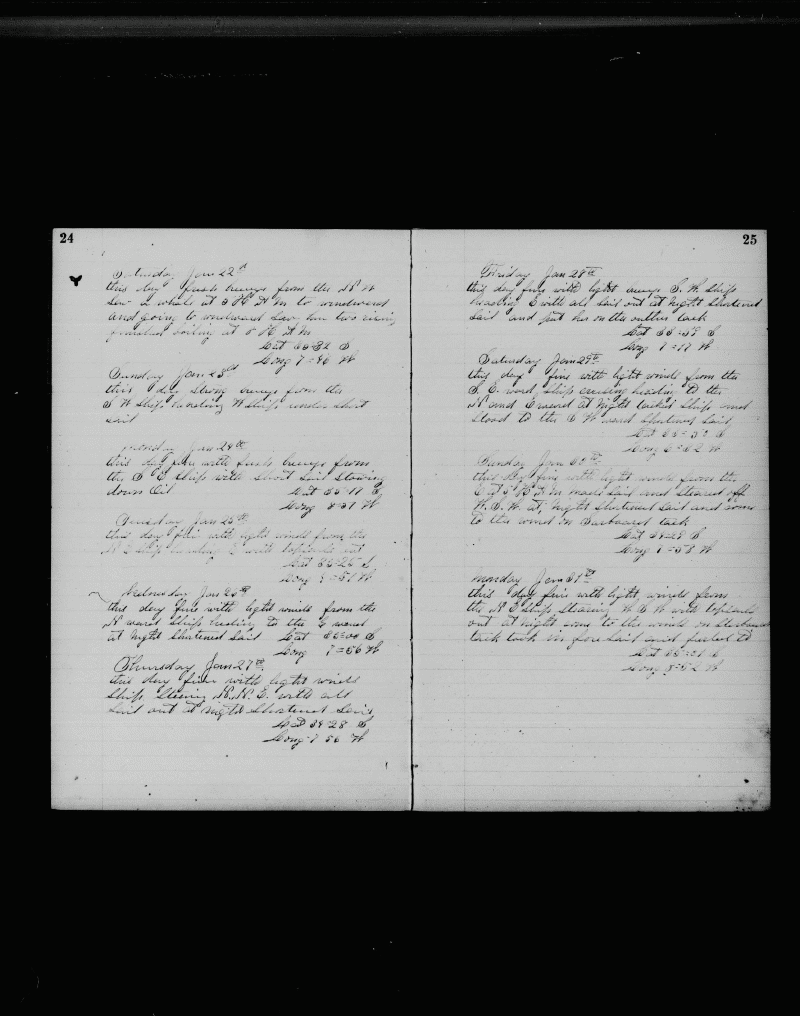 24
Saturday Jan 22nd
this day fresh breeze from the N W
Saw a whale at 5 P M to windward
and going to windward Saw him two rising
finished boiling at 5 P M
Lat 35=32 S
Long 7=46 W
Sunday Jan 23rd
this day Strong breeze from the
S W Ship heading W Ship under Short
Sail
Monday Jan 24th
this day fine with fresh breeze from
the S E Ship with Short Sail Steering
down Oil Lat 35=17 S
Long 8=37 W
Tuesday Jan 25th
this day fine with light winds from the
N E Ship heading E with topsails out
Lat 35=25 S
Long 7=51 W
Wednesday Jan 26th
this day fine with light winds from the
N ward Ship heading to the E ward
at Night Shortened Sail Lat 35=00 S
Long 7=56 W
Thursday Jan 27th
this day fine with light winds
Ship Steering N. N. E. with all
Sail out at Night Shortened Sail
Lat 34 28 S
Long 7 56 W
25
Friday Jan 28th
this day fine with light airs S. W. Ship
heading E with all Sail out at Night Shortened
Sail and put her on the other tack
Lat 33=59 S
Long 7=17 W
Saturday Jan 29th
this day fine with light winds from the
S. E. ward Ship cruising heading to the
N and E ward at Night tacked Ship and
Stood to the S W ward Shortened Sail
Lat S
Long 6=52 W
Sunday Jan 30th
this day fine with light winds from the
E at 5 A M made Sail and Steared off
W. S. W. at Night Shortened Sail and come
to the wind on Starboard tack
Lat S
Long W
Monday Jan 31st
this day fine with light winds from
the N E Ship Stearing W S W with topsails
out at night come to the wind on Starboard
tack took in fore Sail and
Lat 35=01 S
Long 8=52 W